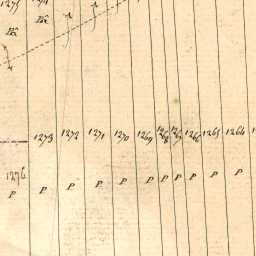 1275
1273 1272 1271 1270 1269 1268 1267 1266 1265 1264
1276
P P P P P P P P P P P